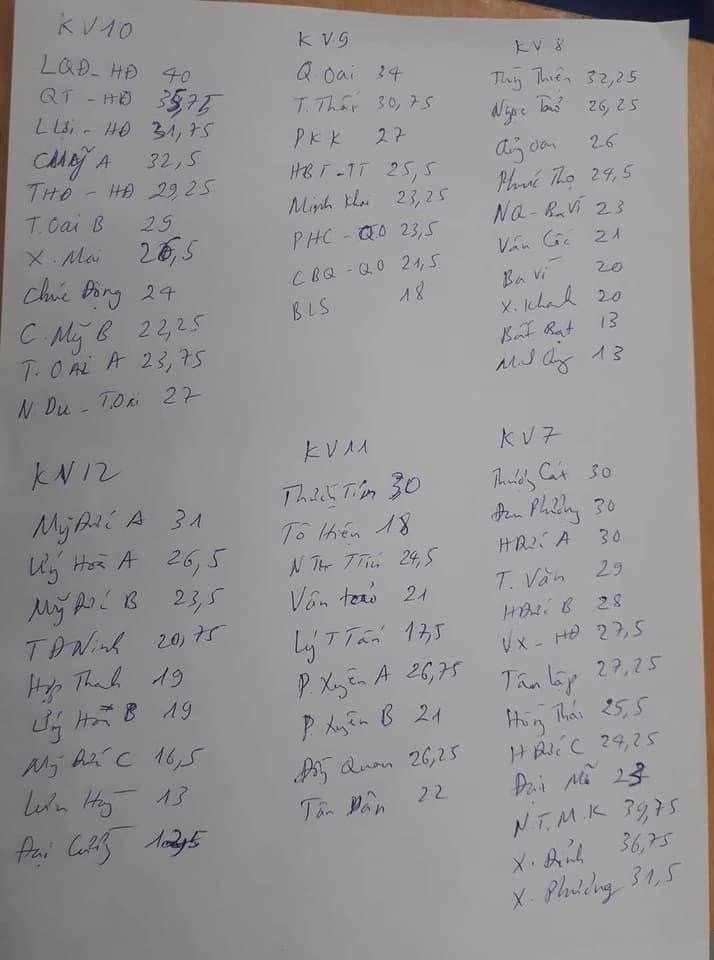 KV10
LQĐ - HĐ 40
QT - HĐ 35,75
L Lợi - HĐ 31,75
C Mỹ A 32,5
THĐ - HĐ 29,25
T. Oai B 29
X. Mai 26,5
Chúc Động 24
C. Mỹ B 22,25
T. OAi A 23,75
N. Du - T.Oai 27
KV9
Q. Oai 34
T. Thất 30,75
PKK 27
HBT - TT 25,5
Minh Khai 23,25
PHC - QO 23,5
CBQ - QO 21,5
BLS 18
KV8
Tùng Thiện 32,25
Ngọc Tảo 26,25
Qảng Oai 26
Phúc Thọ 24,5
NQ - Ba Vì 23
Vân Cốc 21
Ba Vì 20
X. Khanh 20
Bất Bạt 13
M. Quang 13
KV12
Mỹ Đức A 31
Ứng Hoà A 26,5
Mỹ Đức B 23,5
TĐ Ninh 20,75
Hợp Thanh 19
Ứng Hoà B 19
Mỹ Đức C 16,5
Lưu Hoàng 13
Đại Cường
KV11
Thường Tín 30
Tô Hiệu 18
N Tr T Tín 24,5
Vân Tảo 21
Lý T Tấn 17,5
P. Xuyên A 26,75
P. Xuyên B 21
Đồng Quan 26,25
Tân Dân 22
KV7
Thượng Cát 30
Đan Phượng 30
H Đức A 30
T. Văn 29
H Đức B 28
VX - HĐ 27,5
Tân Lập 27,25
Hồng Thái 25,5
H Đức C 24,25
Đại Mỗ 23
N.T.M.K 39,75
X. Đỉnh 36,75
X. Phương 31,5